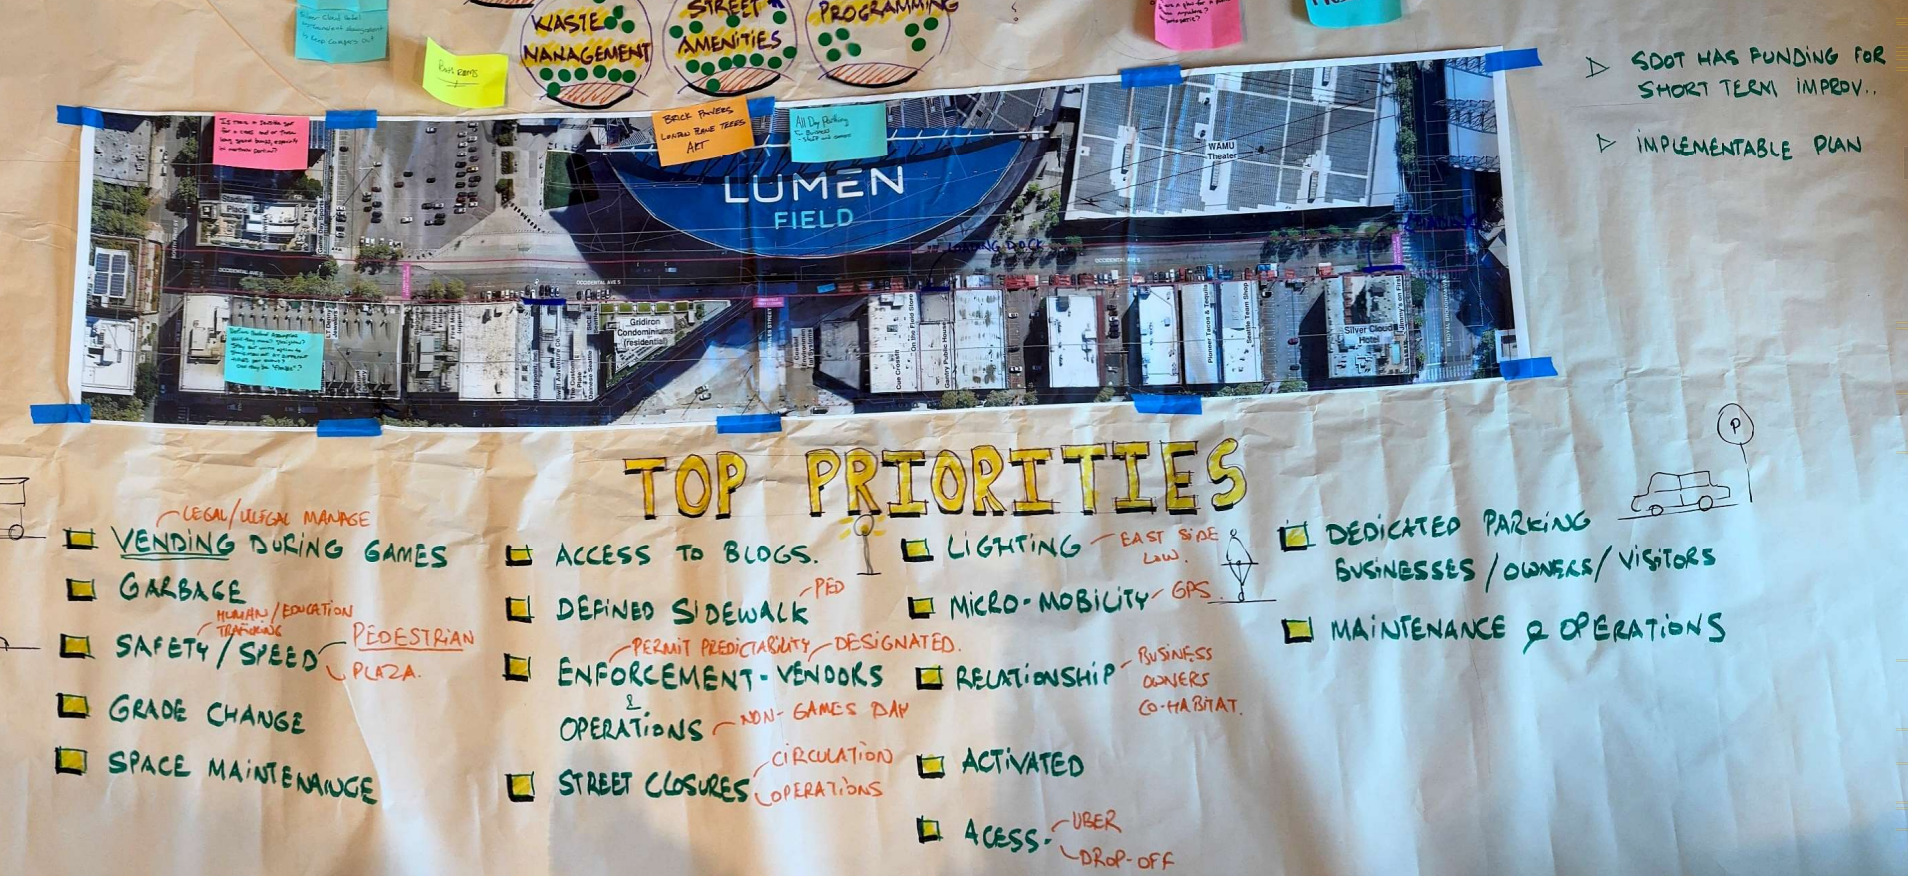 WASTE
MANAGEMENT
STREET
AMENITIES
PROGRAMMING
?
SDOT HAS FUNDING FOR
SHORT TERM IMPROV..
IMPLEMENTABLE PLAN
BRICK PAVERS
LONDON PLANE TREES
ART
All Day Parking
LUMEN
FIELD
WAMU
Theater
LOADING DOCK
OCCIDENTAL AVE S
OCCIDENTAL AVE S
OCCIDENTAL AVE S
Gridiron
Condominiums
(residential)
Cue Crossfit
On the Field Store
Gantry Public House
Pioneer Tacos & Tequila
Seattle Team Shop
Silver Cloud
Hotel
Jimmy's on First
TOP PRIORITIES
P
LEGAL/ILLEGAL MANAGE
VENDING DURING GAMES
GARBAGE
HUMAN/EDUCATION
TRAFICKING
SAFETY/SPEED
PEDESTRIAN
PLAZA.
GRADE CHANGE
SPACE MAINTENAINGE
ACCESS TO BLDGS.
PED
DEFINED SIDEWALK
PERMIT PREDICTABILITY DESIGNATED.
ENFORCEMENT-VENDORS
&
OPERATIONS
NON-GAMES DAY
STREET CLOSURES
CIRCULATION
OPERATIONS
LIGHTING
EAST SIDE
LOW.
MICRO-MOBILITY GPS.
RELATIONSHIP
BUSINESS
OWNERS
CO-HABITAT.
ACTIVATED
ACESS-
UBER
DROP-OFF
DEDICATED PARKING
BUSINESSES/OWNERS/VISITORS
MAINTENANCE & OPERATIONS